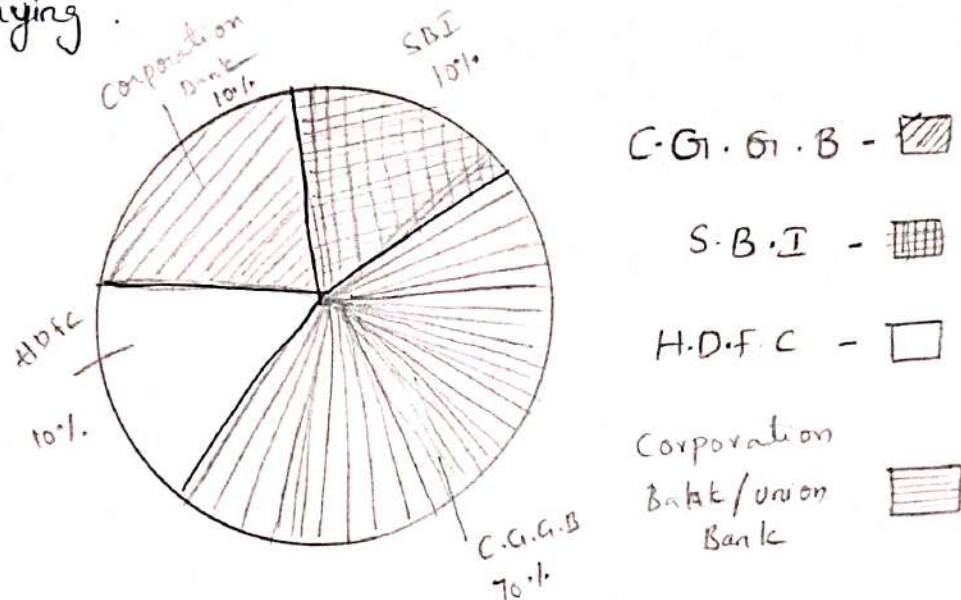 Corporation
Bank
10%.
SBI
10%.
HDFC
10%.
C.G.G.B
70%.
C.G.G.B -
S.B.I -
H.D.F.C -
Corporation
Bank/union
Bank